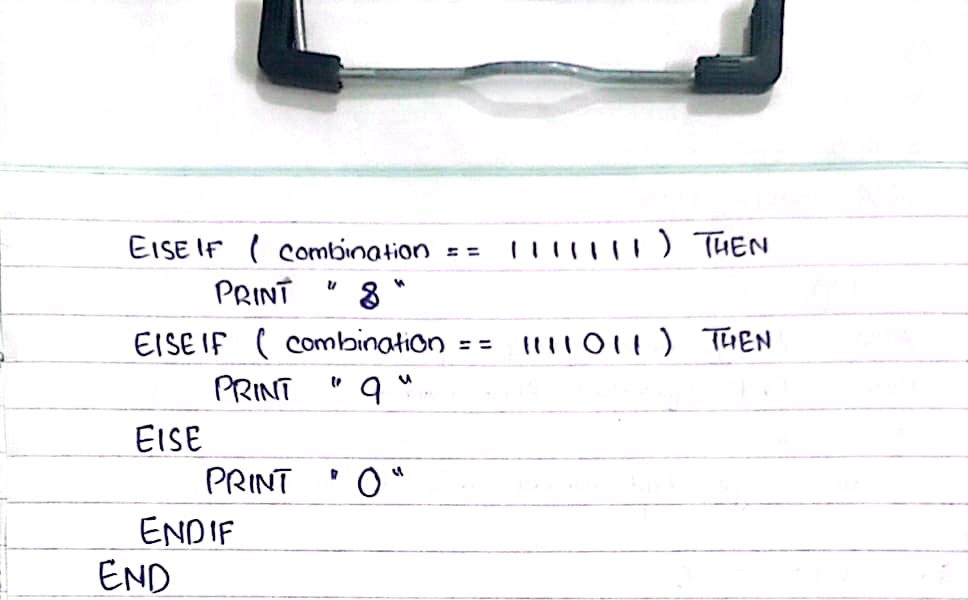 ElSEIF ( combination == 1111111 ) THEN
PRINT "8"
ElSEIF ( combination == 1111011 ) THEN
PRINT "9"
ElSE
PRINT "0"
ENDIF
END